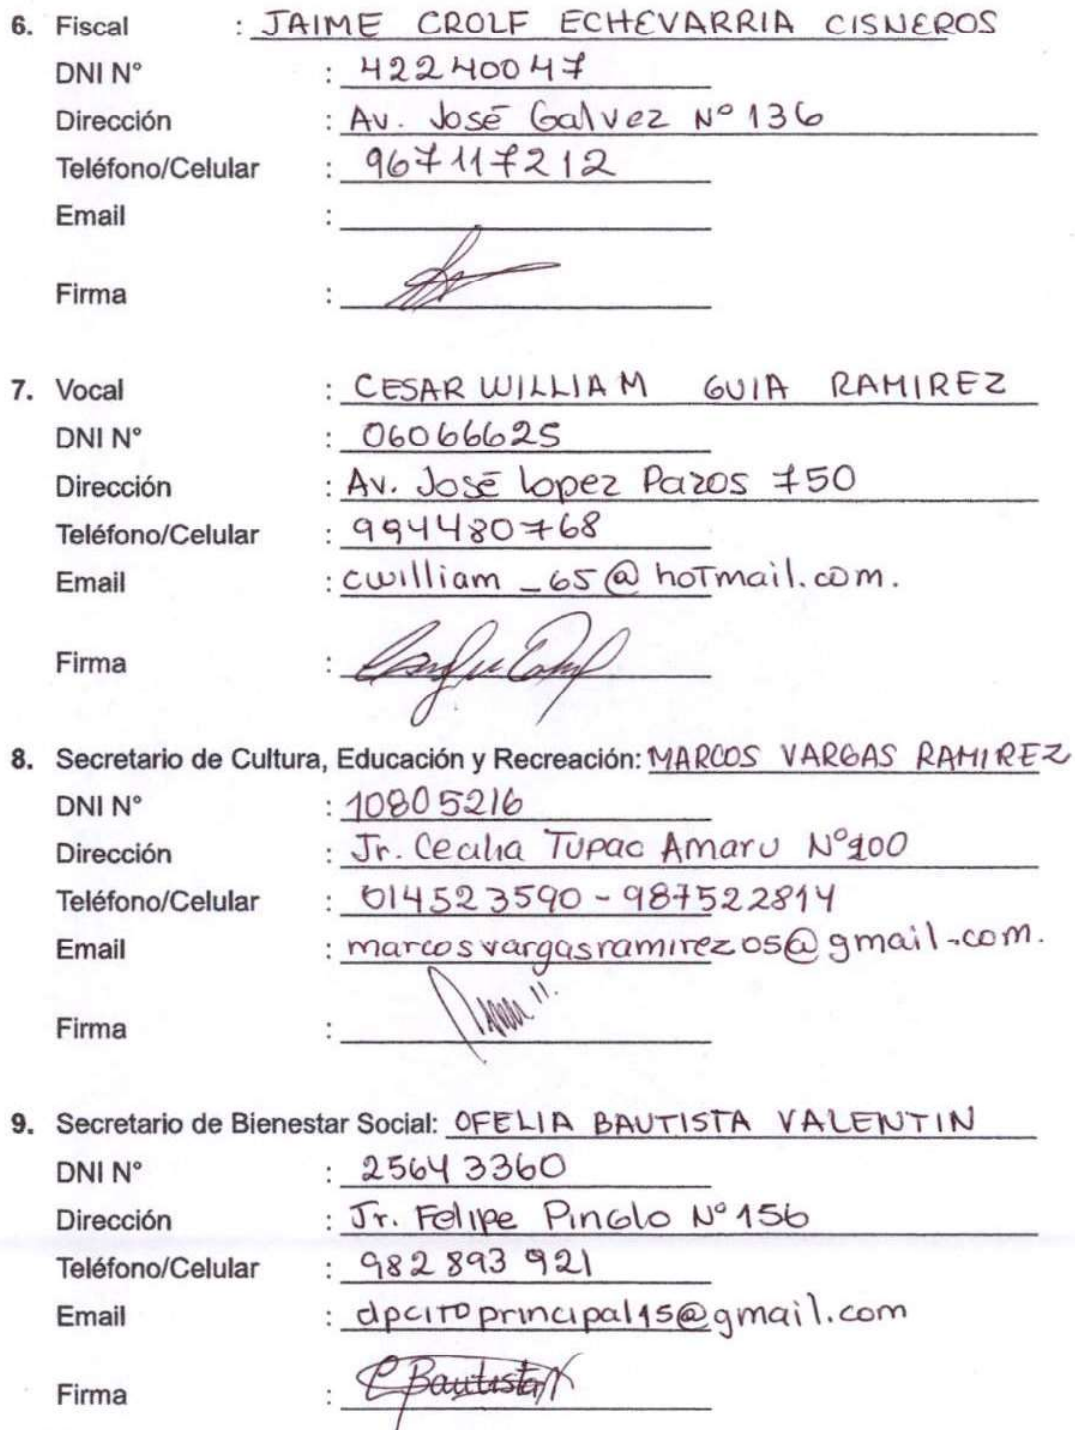 6. Fiscal : JAIME CROLF ECHEVARRIA CISNEROS
DNI N° : 42240047
Dirección : Av. José Galvez N° 136
Teléfono/Celular : 967117212
Email :
Firma :
7. Vocal : CESAR WILLIAM GUIA RAMIREZ
DNI N° : 06066625
Dirección : Av. José Lopez Pazos 750
Teléfono/Celular : 994480768
Email : cwilliam_65@hotmail.com.
Firma :
8. Secretario de Cultura, Educación y Recreación: MARCOS VARGAS RAMIREZ
DNI N° : 10805216
Dirección : Jr. Cecilia Tupac Amaru N°200
Teléfono/Celular : 014523590 - 987522814
Email : marcosvargasramirez05@gmail.com.
Firma :
9. Secretario de Bienestar Social: OFELIA BAUTISTA VALENTIN
DNI N° : 25643360
Dirección : Jr. Felipe Pinglo N° 156
Teléfono/Celular : 982 893 921
Email : dpcitoprincipal15@gmail.com
Firma : Bautista